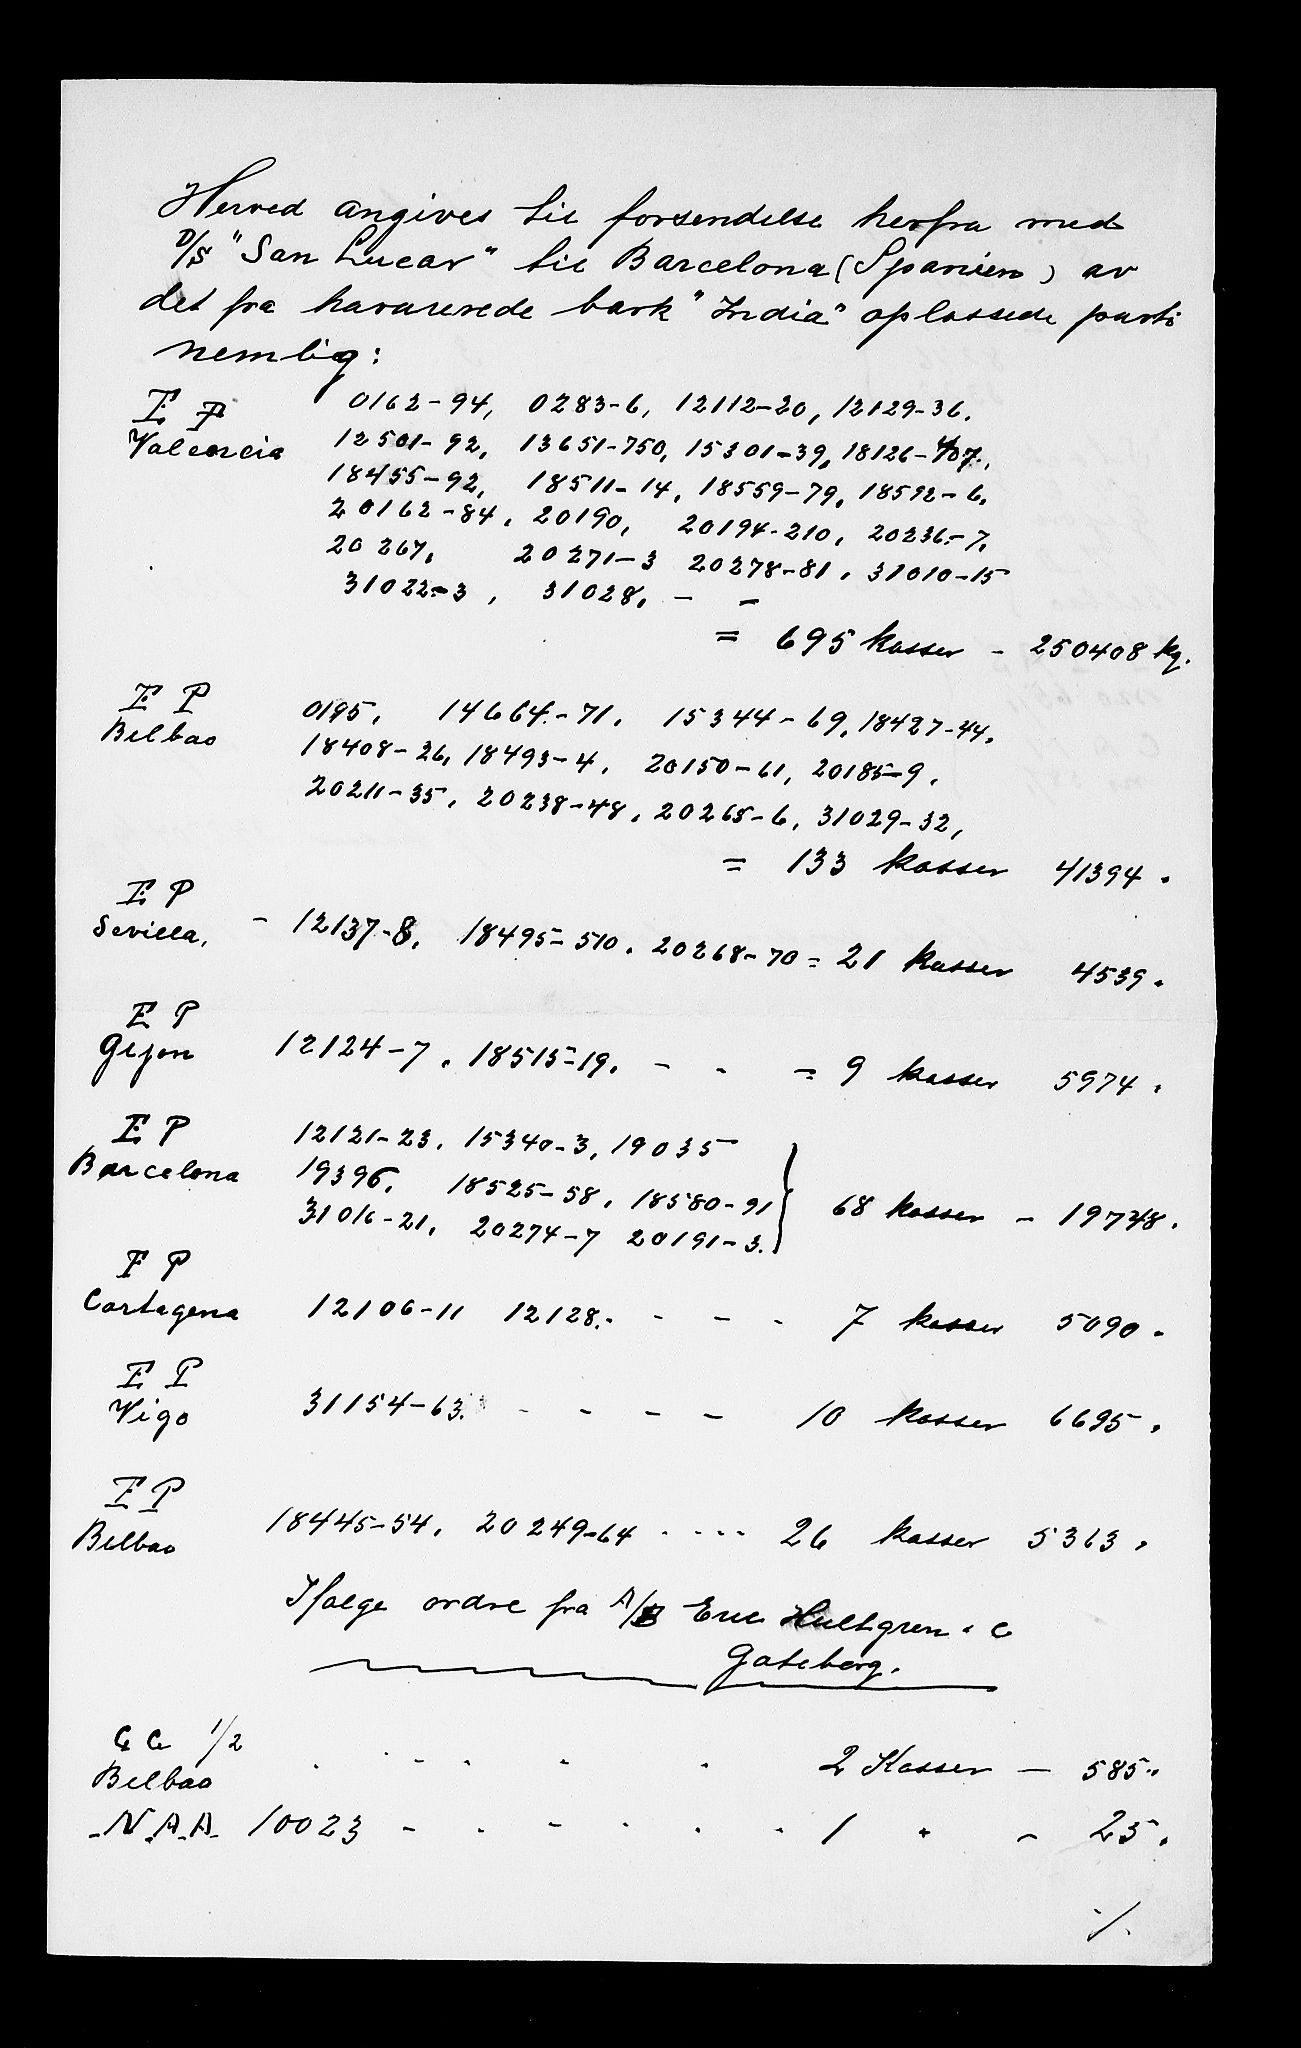 Herved angives til forsendelse herfra med
D/S "San Lucar" til Barcelona (Spanien) av
det fra havarerede bark "India" oplossede parti
nemlig:
E P 0162-94, 0283-6, 12112-20, 12129-36.
Valencia 12501-92, 13651-750, 15301-39, 18126-407.,
18455-92, 18511-14, 18559-79, 18592-6,
20162-84, 20190, 20194-210, 20236-7,
20267, 20271-3 20278-81, 31010-15
31022-3, 31028. - -
= 695 kasser - 250408 kg.
E P 0195, 14664-71, 15344-69, 18427-44,
Bilbao 18408-26, 18493-4, 20150-61, 20185-9,
20211-35, 20238-48, 20265-6, 31029-32,
= 133 kasser 41394 "
E P
Sevilla, - 12137-8, 18495-510, 20268-70 = 21 kasser 4539 "
E P
Gijon 12124-7, 18515-19. - - = 9 kasser 5974 "
E P 12121-23, 15340-3, 19035
Barcelona 19396, 18525-58, 18580-91 } 68 kasser - 19748 "
31016-21, 20274-7 20191-3.
E P
Cartagena 12106-11 12128. - - - - 7 kasser 5090 "
E P
Vigo 31154-63. - - - - 10 kasser 6695 "
E P
Bilbao 18445-54, 20249-64 . . . . 26 kasser 5363 "
Ifølge ordre fra A/B Eric Hultgren & C
Gøteborg.
C C 1/2
Bilbao - - - - 2 Kasser - 585 "
N.A.A. 10023 - - - - - - 1 " - 25 "
./.